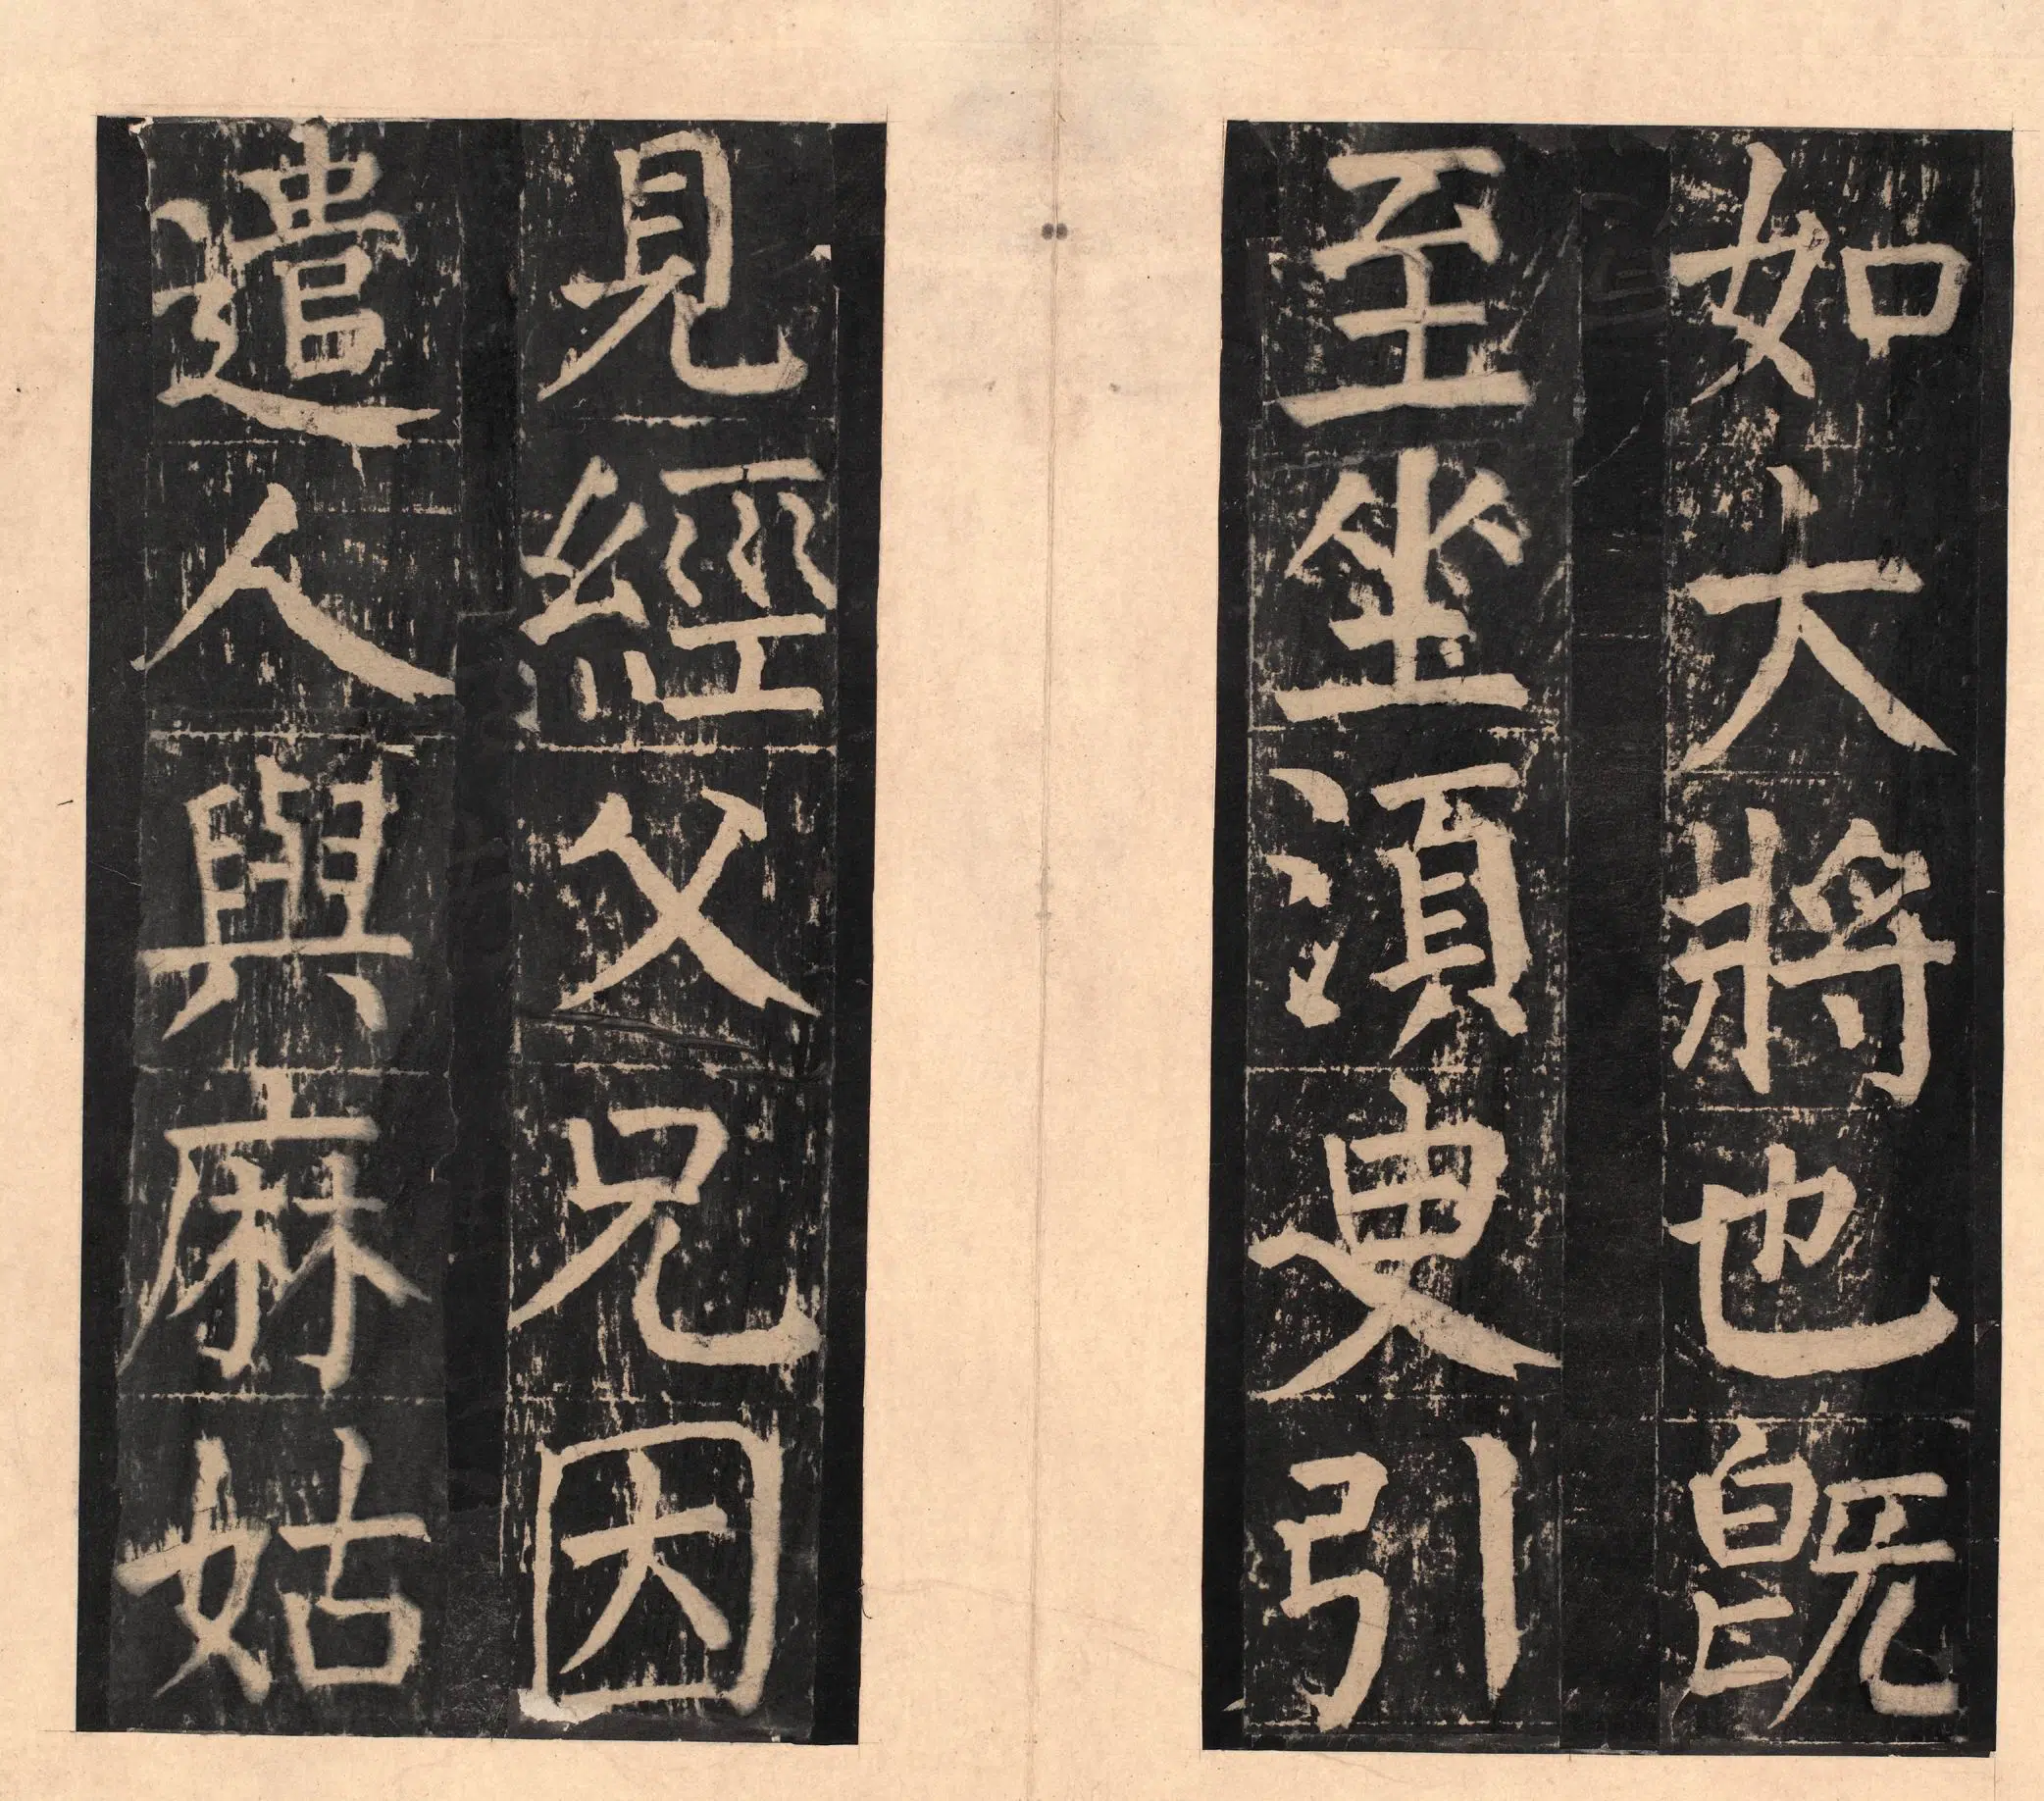 如大將也既
至坐湏㪅引
見經父兄因
遣人與麻姑